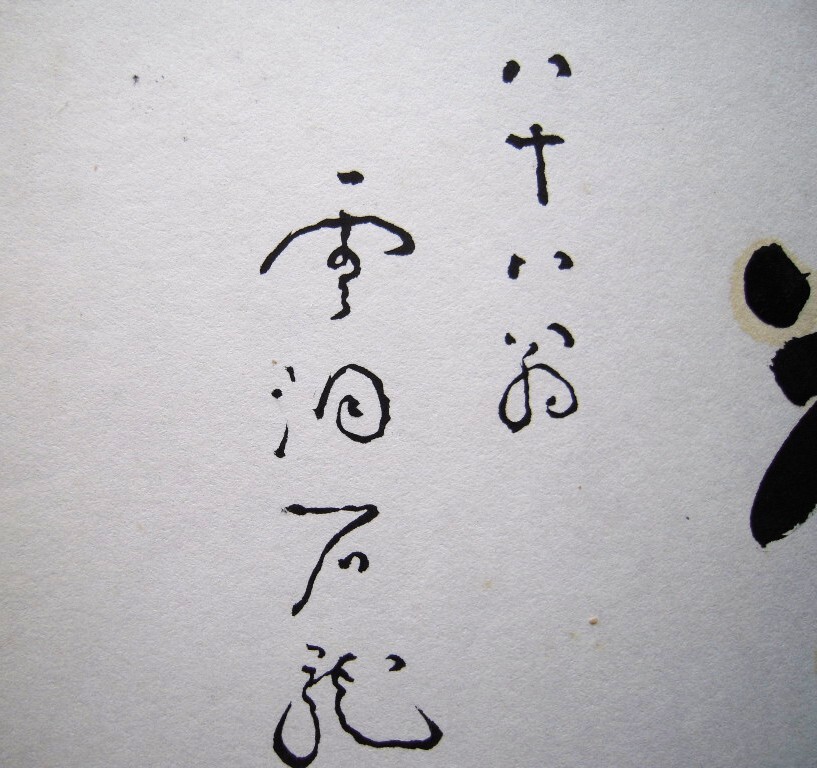 八十八翁
雲洞石龍